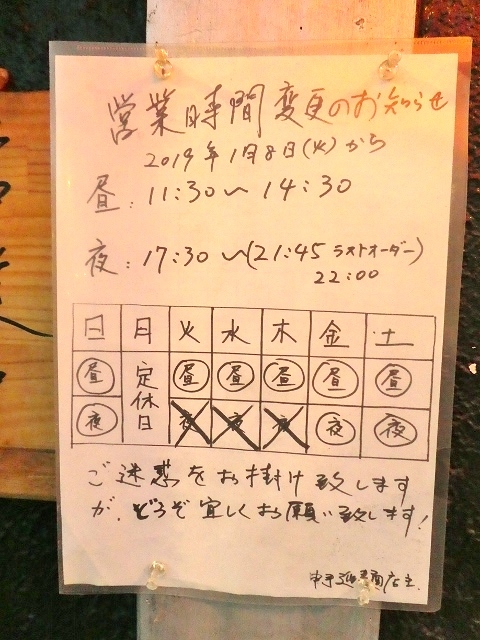 営業時間変更のお知らせ
2019年1月8日(火)から
昼:11:30〜14:30
夜:17:30〜(21:45 ラストオーダー)
22:00
日 月 火 水 木 金 土
昼 定休日 昼 昼 昼 昼 昼
夜 夜 夜 夜 夜 夜
ご迷惑をお掛け致します
が、どうぞ宜しくお願い致します!
店主